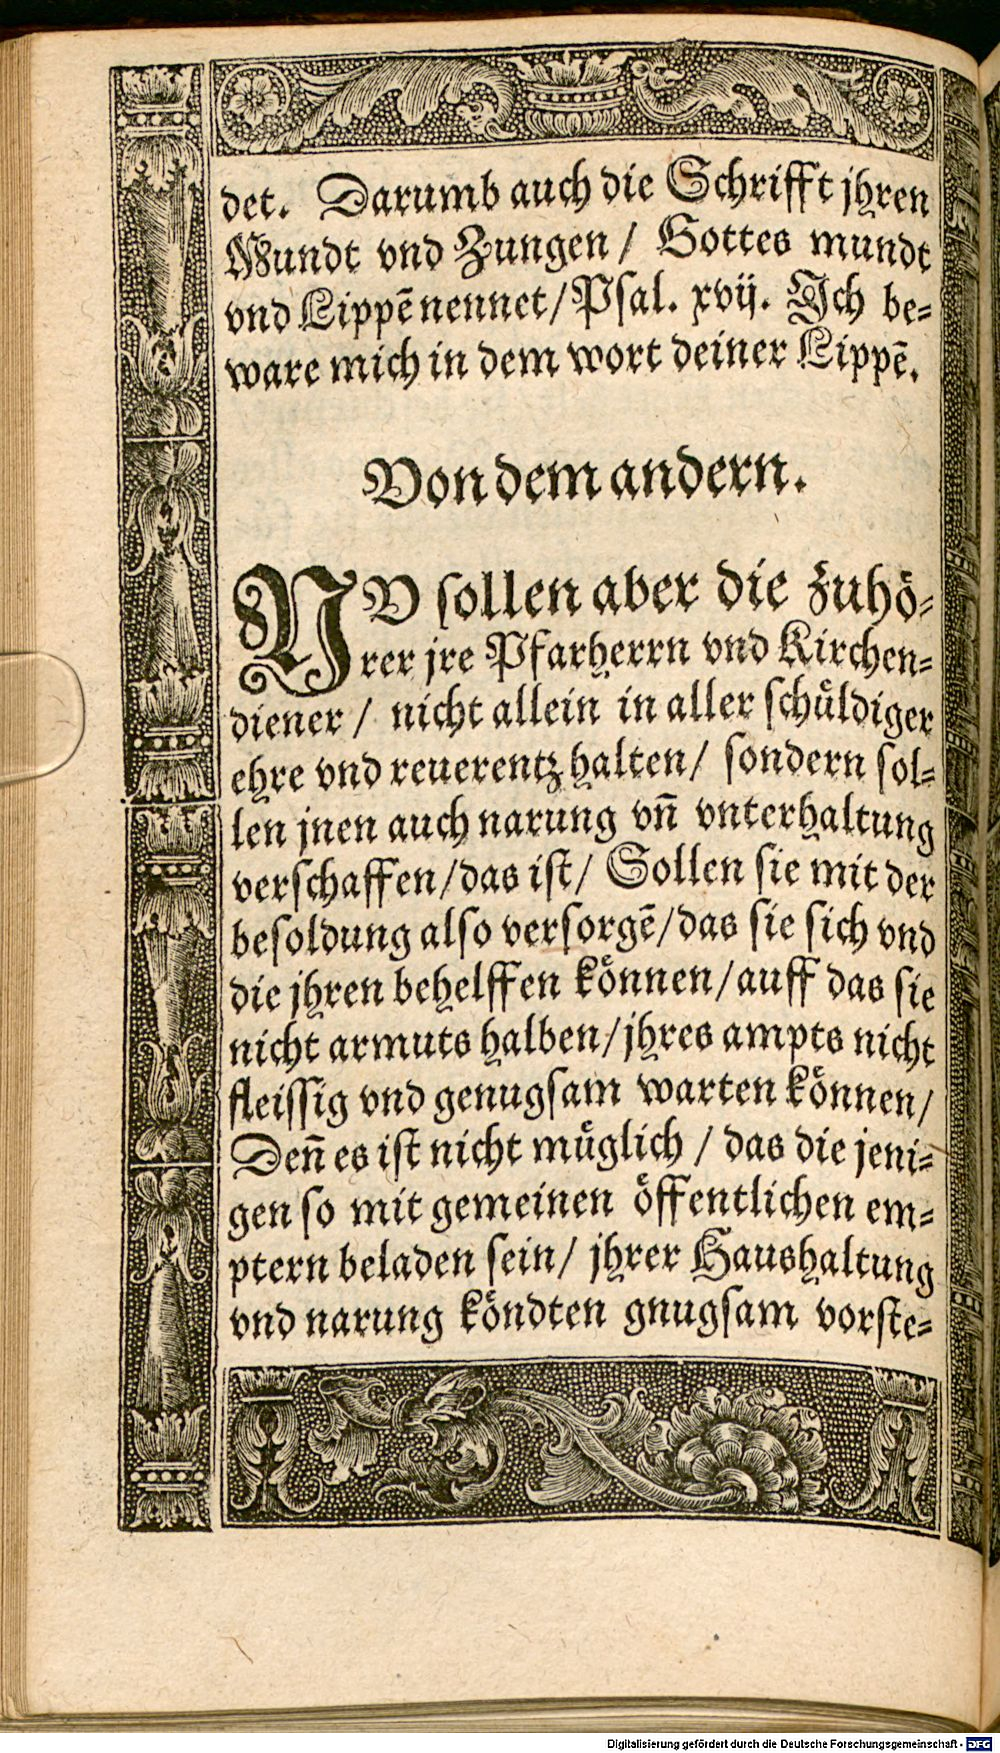 det. Darumb auch die Schrifft jhren
Mundt vnd Zungen / Gottes mundt
vnd Lippē nennet / Psal. xvij. Ich be-
ware mich in dem wort deiner Lippē.
Von dem andern.
NV sollen aber die Zuhö-
rer jre Pfarherrn vnd Kirchen-
diener / nicht allein in aller schüldiger
ehre vnd reuerentz halten / sondern sol-
len jnen auch narung vn̄ vnterhaltung
verschaffen / das ist / Sollen sie mit der
besoldung also versorgē / das sie sich vnd
die jhren behelffen können / auff das sie
nicht armuts halben / jhres ampts nicht
fleissig vnd genugsam warten können /
Den̄ es ist nicht müglich / das die jeni-
gen so mit gemeinen öffentlichen em-
ptern beladen sein / jhrer Haushaltung
vnd narung köndten gnugsam vorste-
Digitalisierung gefördert durch die Deutsche Forschungsgemeinschaft - DFG